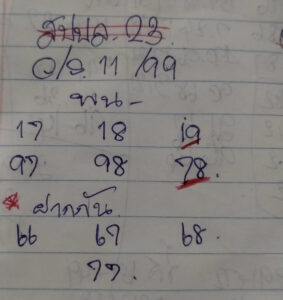 สปปล. 23
อ/ย. 11 /99
พน -
17 18 19
97 98 78.
* ฝากกัน.
66 67 68.
77.